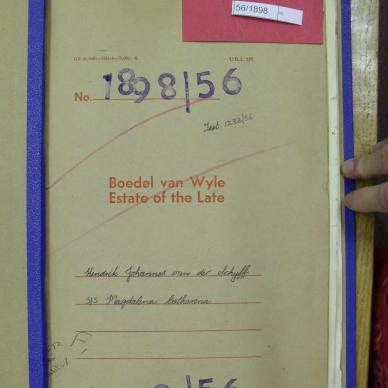 56/1898
U.D.J. 371.
No. 1898/56
Test. 1232/56
Boedel van Wyle
Estate of the Late
Hendrik Johannes van der Schyff
S/S Magdalena Catharina
1898/56